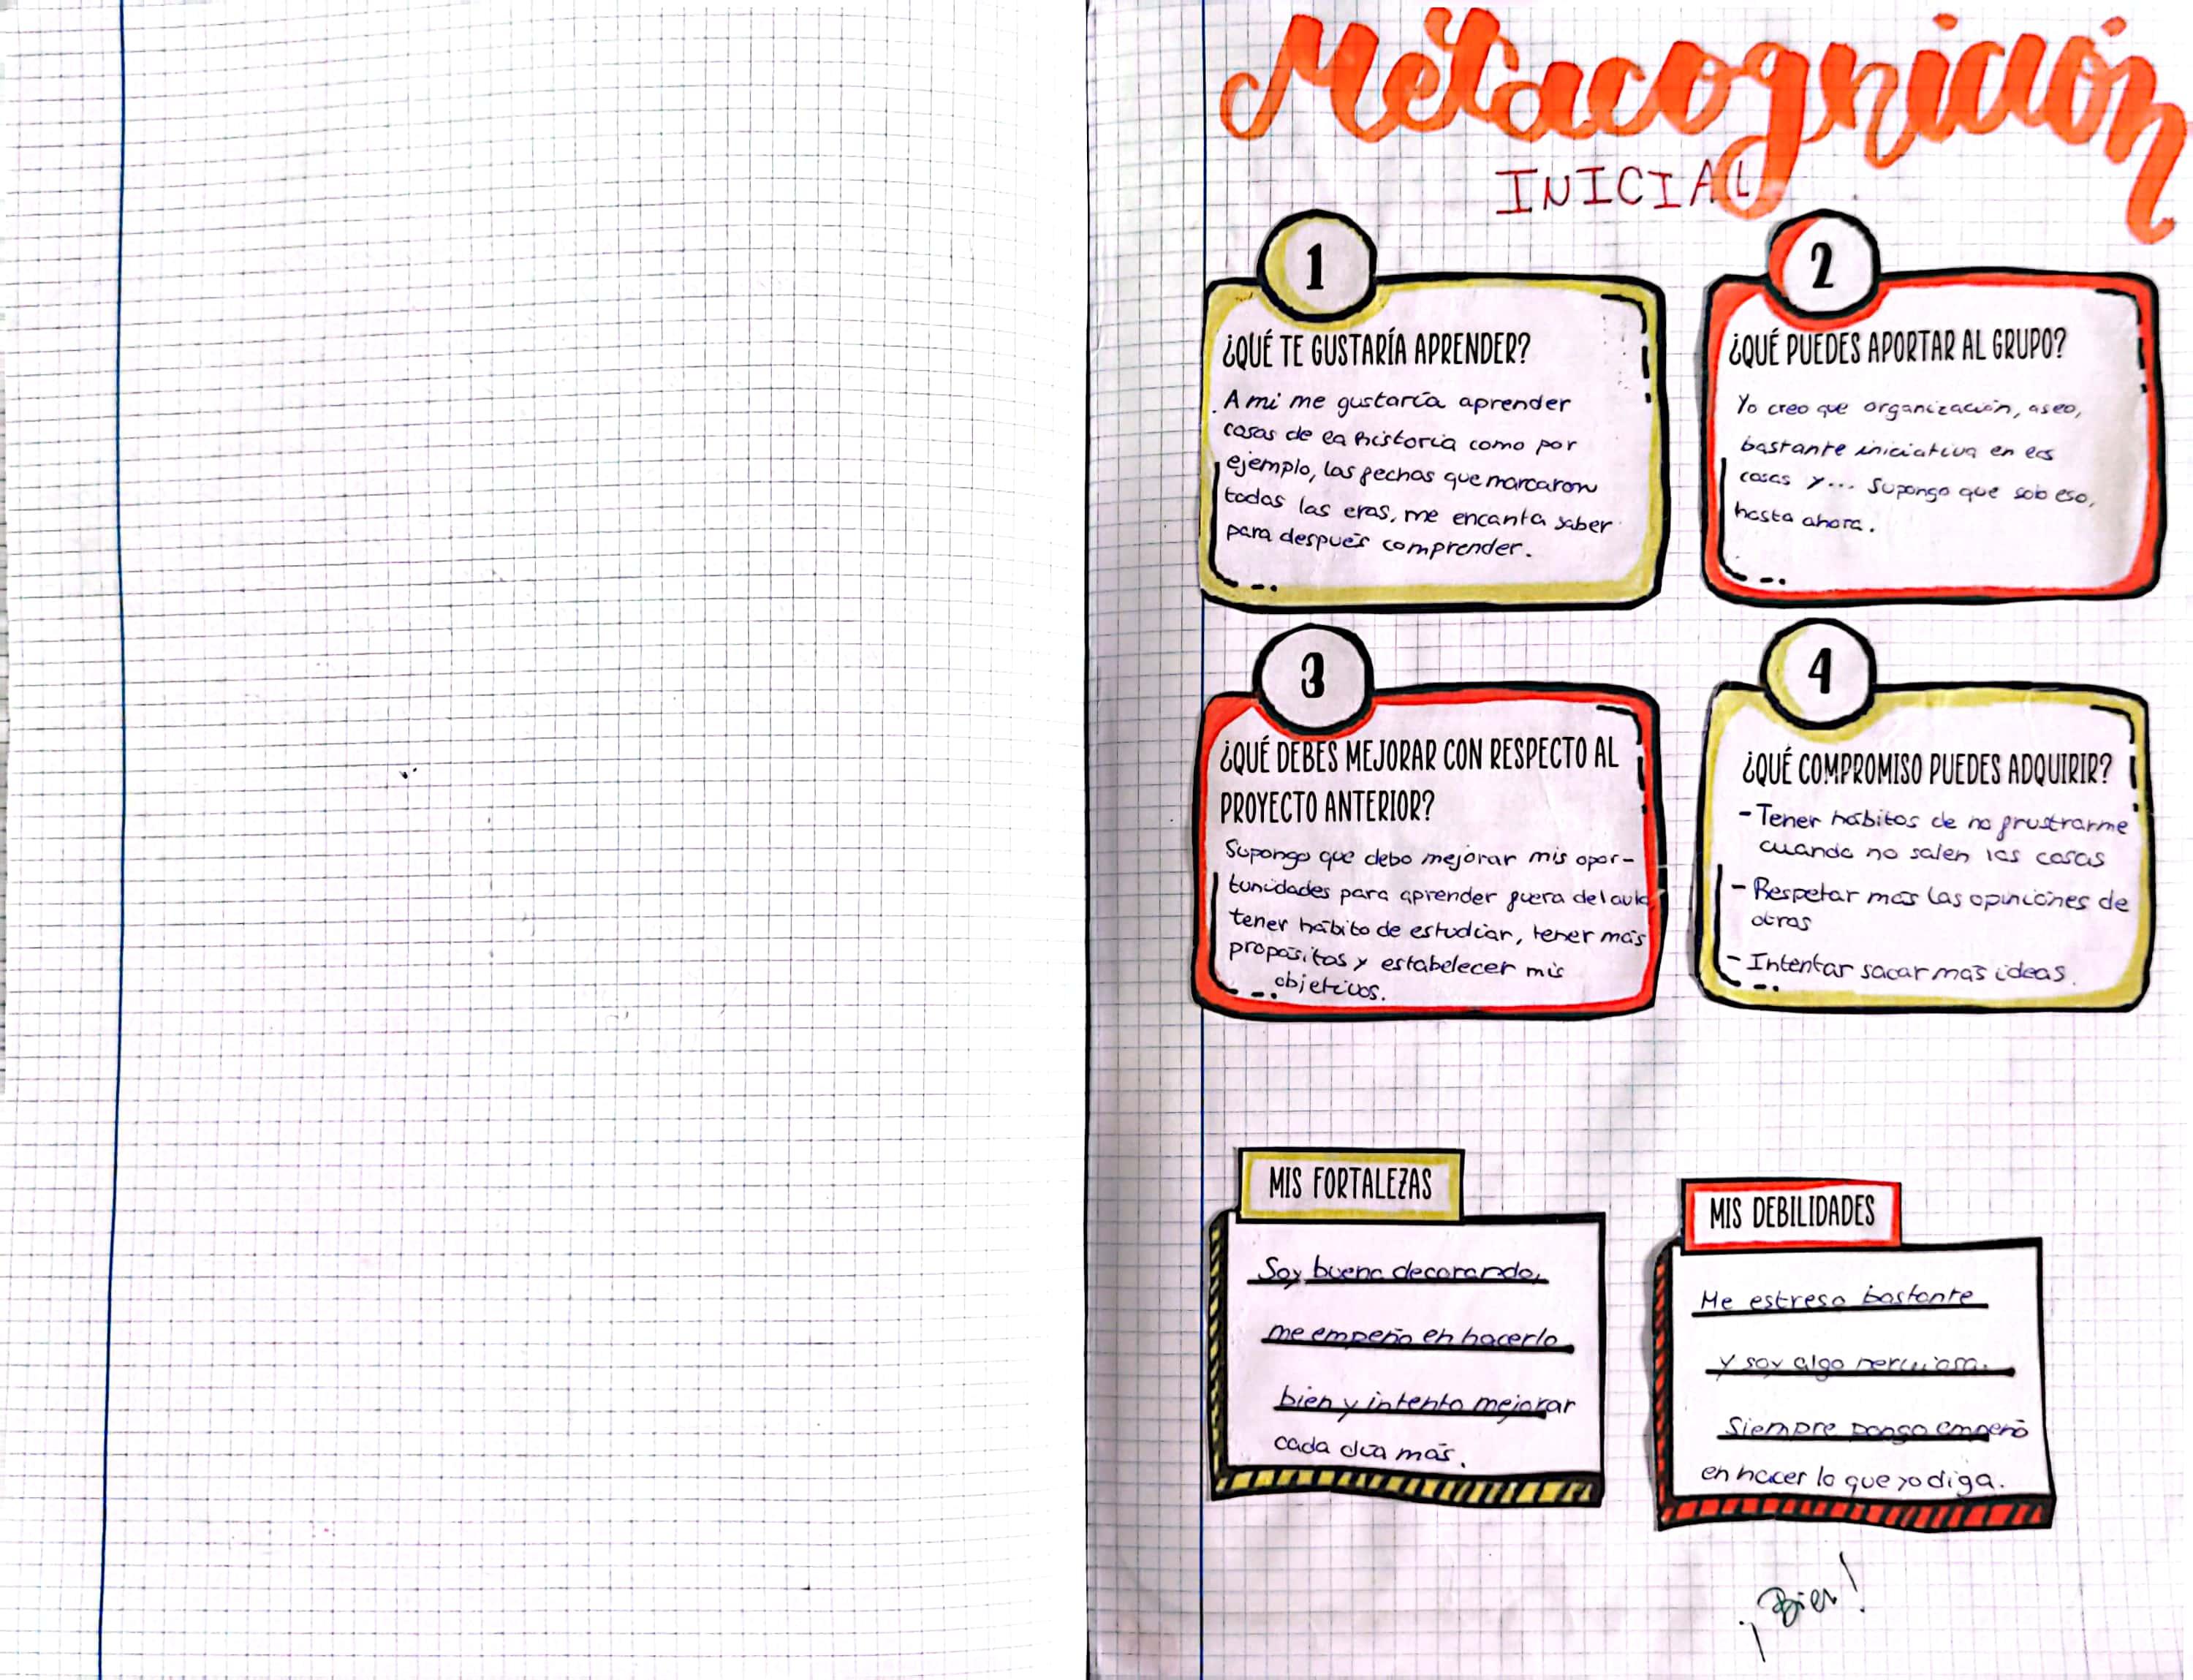 Metacognición
INICIAL
1
¿QUÉ TE GUSTARÍA APRENDER?
A mi me gustaría aprender
cosas de la historia como por
ejemplo, las fechas que marcaron
todas las eras, me encanta saber
para después comprender.
2
¿QUÉ PUEDES APORTAR AL GRUPO?
Yo creo que organización, aseo,
bastante iniciativa en las
cosas y... supongo que solo eso,
hasta ahora.
3
¿QUÉ DEBES MEJORAR CON RESPECTO AL
PROYECTO ANTERIOR?
Supongo que debo mejorar mis opor-
tunidades para aprender fuera del aula
tener hábito de estudiar, tener más
propósitos y estabelecer mis
objetivos.
4
¿QUÉ COMPROMISO PUEDES ADQUIRIR?
- Tener hábitos de no frustrarme
cuando no salen las cosas
- Respetar más las opiniones de
otros
- Intentar sacar más ideas.
MIS FORTALEZAS
Soy buena decorando,
me empeño en hacerlo
bien y intento mejorar
cada día más.
MIS DEBILIDADES
Me estreso bastante
y soy algo nerviosa.
Siempre pongo empeño
en hacer lo que yo diga.
¡Bien!